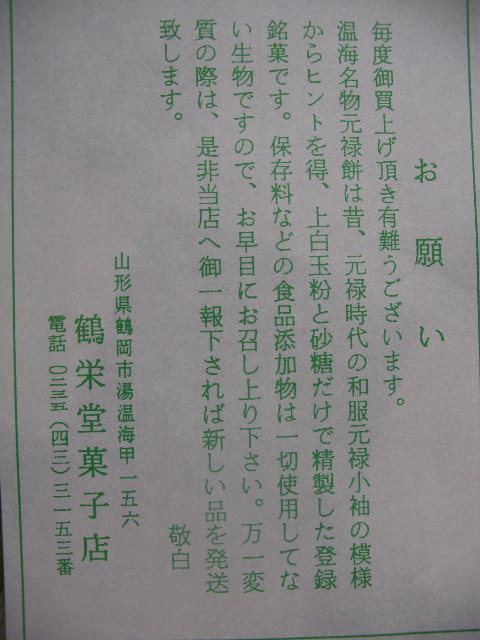 お願い
毎度御買上げ頂き有難うございます。
温海名物元禄餅は昔、元禄時代の和服元禄小袖の模様
からヒントを得、上白玉粉と砂糖だけで精製した登録
銘菓です。保存料などの食品添加物は一切使用してな
い生物ですので、お早目にお召し上り下さい。万一変
質の際は、是非当店へ御一報下されば新しい品を発送
致します。
敬白
山形県鶴岡市湯温海甲一五六
鶴栄堂菓子店
電話 〇二三五(四三)三一五三番